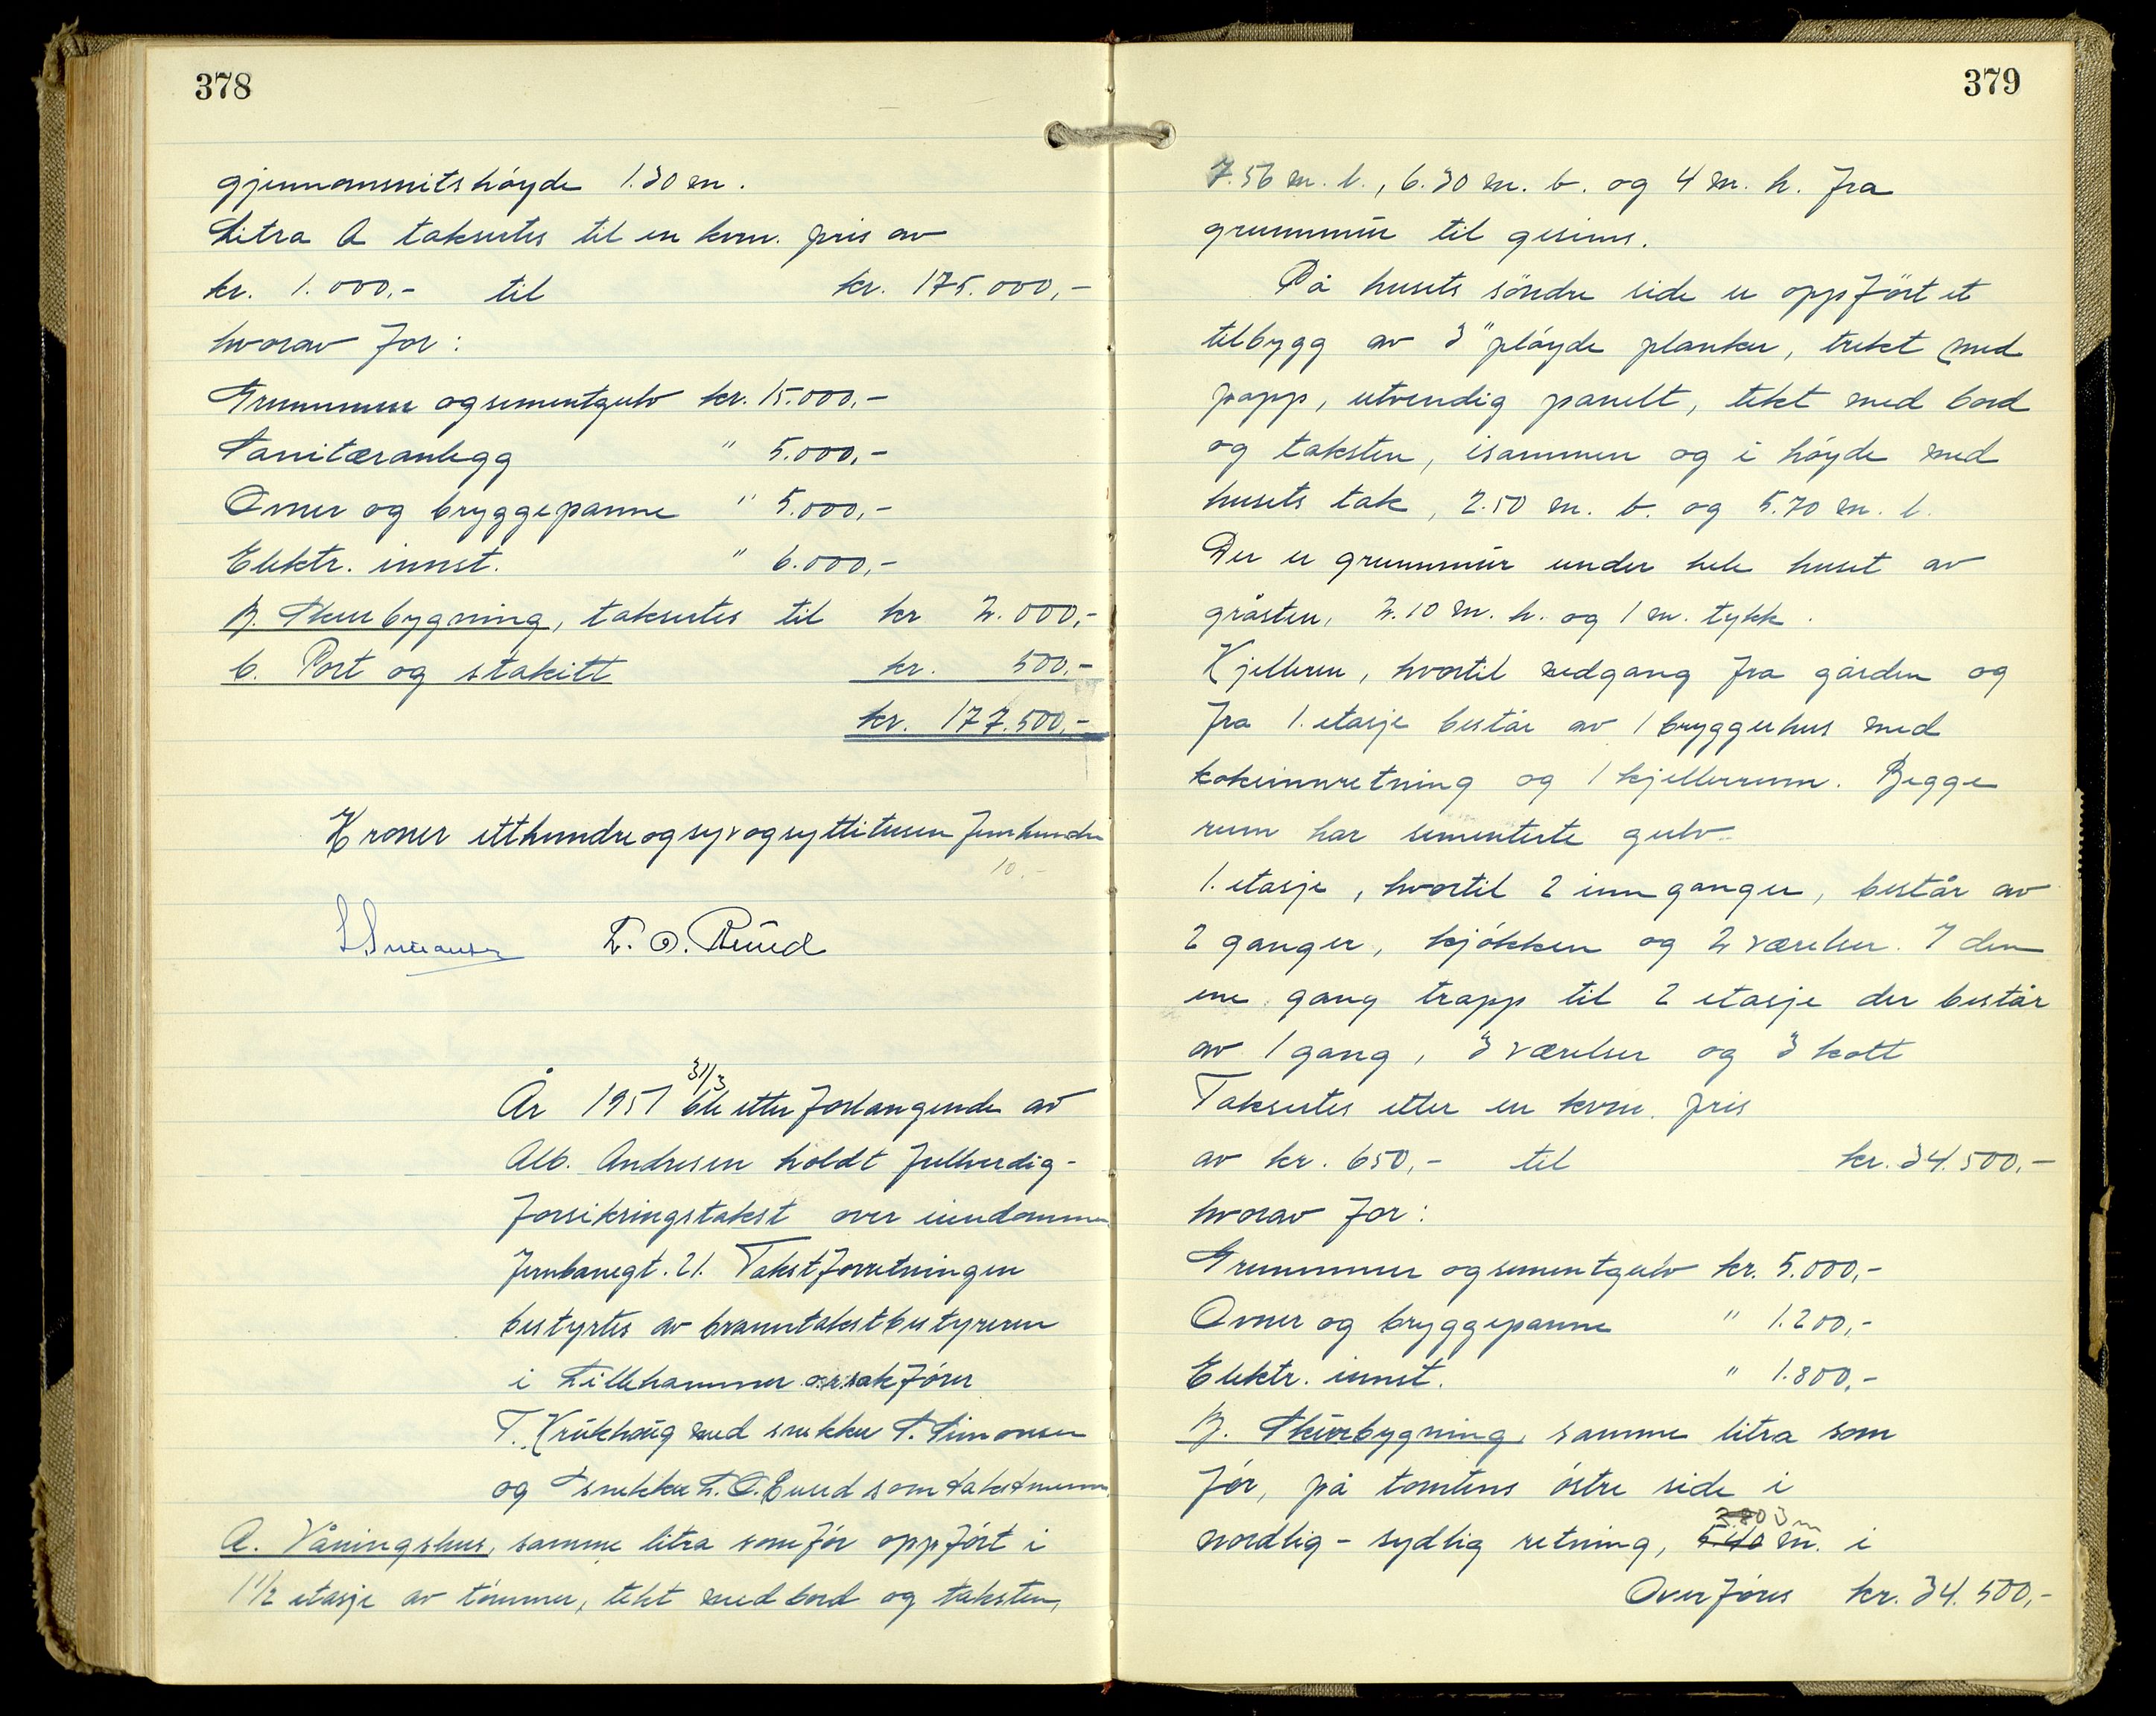 378
gjennomsnitshöyde 1.30 m.
Litra A taksertes til en kvm. pris av
kr. 1.000,- til kr. 175.000,-
hvorav for:
Grunnmur og sementgulv kr. 15.000,-
Sanitæranlegg " 5.000,-
Ovner og bryggepanne " 5.000,-
Elektr. innst. " 6.000,-
B. Skurbygning, taksertes til kr 2.000,-
C. Port og stakitt kr. 500,-
kr. 177.500,-
Kroner etthundreogsyvogsyttitusen femhundre
10.-
S. Simonsen L. O. Ruud
31/3
År 1951 ble etter forlangende av
Alb. Andresen holdt fullverdig-
forsikringstakst over eiendommen
Jernbanegt. 21. Takstforretningen
bestyrtes av branntakstbestyreren
i Lillehammer o.r.sakförer
T. Krükhaug med snekker S. Simonsen
og snekker L. O. Ruud som takstmenn.
A. Våningshus, samme litra som för oppfört i
1 1/2 etasje av tömmer, tekt med bord og taksten,
379
7.56 m. l., 6.30 m. b. og 4 m. h. fra
grunnmür til gesims.
På husets söndre side er oppfört et
tilbygg av 3" plöyde planker, trekt med
papp, utvendig panelt, tekt med bord
og taksten, isammen og i höyde med
husets tak, 2.50 m. b. og 5.70 m. l.
Der er grunnmür under hele huset av
gråsten, 2.10 m. h. og 1 m. tykk.
Kjelleren, hvortil nedgang fra gården og
fra 1. etasje består av 1 bryggerhus med
kokeinnretning og 1 kjellerrum. Begge
rum har sementerte gulv.
1. etasje, hvortil 2 innganger, består av
2 ganger, kjökken og 2 værelser. I den
ene gang trapp til 2 etasje der består
av 1 gang, 3 værelser og 3 kott
Taksertes etter en kvm. pris
av kr. 650,- til kr. 34.500,-
hvorav for:
Grunnmur og sementgulv kr. 5.000,-
Ovner og bryggepanne " 1.200,-
Elektr. innst. " 1.800,-
B. Skürbygning, samme litra som
för, på tomtens östre side i
3 m
nordlig - sydlig retning, m. i
Overföres kr. 34.500,-